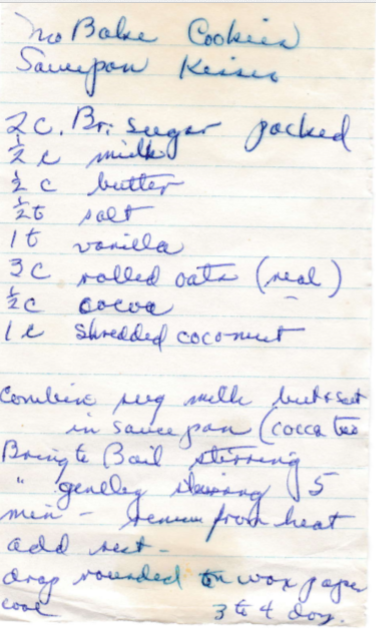 No Bake Cookies
Saucepan Kisses
2 c. Br. sugar packed
½ c milk
½ c butter
½ t salt
1 t vanilla
3 c rolled oats (real)
½ c cocoa
1 c shredded coconut
Combine sug milk butt salt
in sauce pan (cocoa too
Bring to Boil stirring
" gentley stirring 5
min - remove from heat
add rest -
drop rounded t on wax paper
cool 3 to 4 doz.